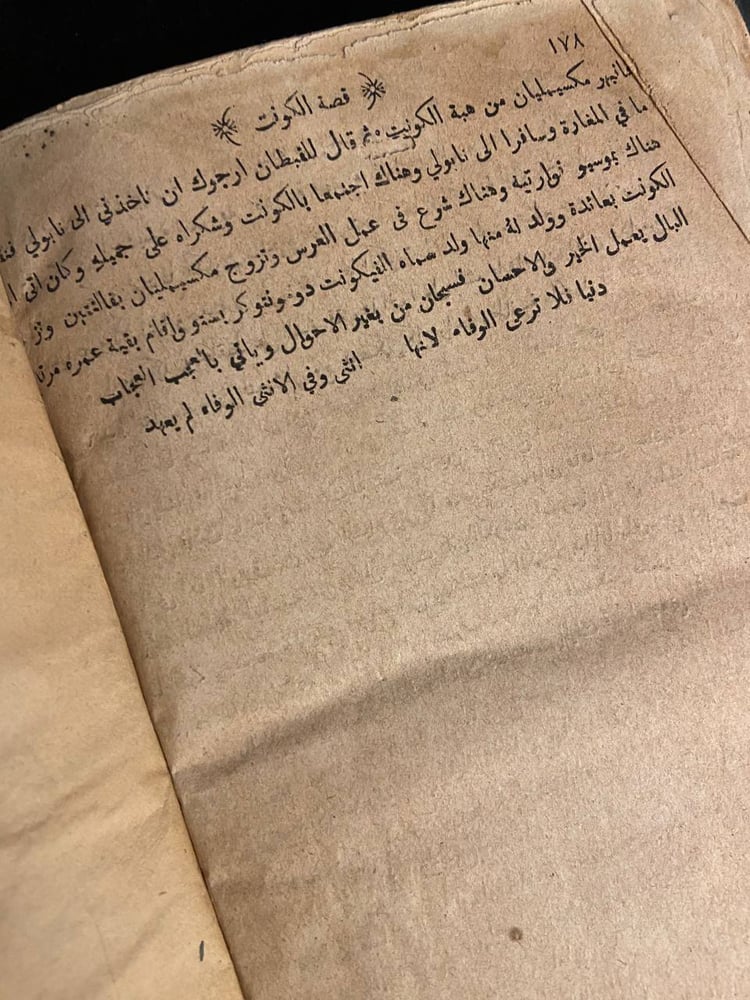 ١٧٨
قصة الكونت
مكسيميليان من هبة الكونت ثم قال للقبطان ارجوك ان تاخذني الى نابولي
ما في المغارة وسافرا الى نابولي وهناك اجتمعا بالكونت وشكراه على جميله وكان اتى
هناك بموسيو نوارتيه وهناك شرع في عمل العرس وتزوج مكسيميليان بفالنتين
الكونت بعائدة وولد له منها ولد سماه الفيكونت دو مونتوكريستو واقام بقية عمره
البال يعمل الخير والاحسان فسبحان من يغير الاحوال وياتي بالعجب العجاب
دنيا فلا ترعى الوفاه لانها انثى وفي الانثى الوفاه لم يعهد